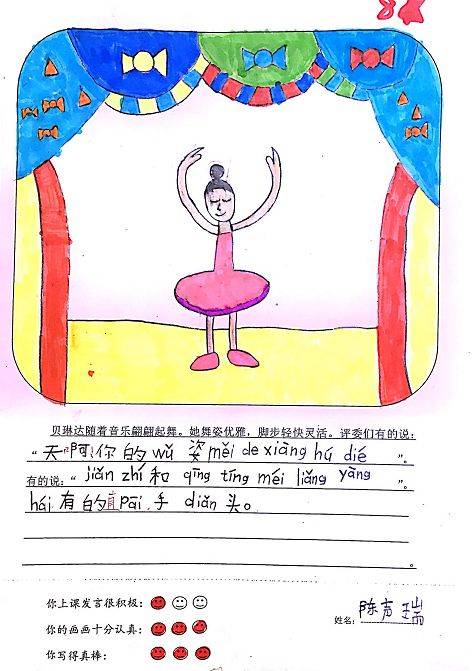 8
贝琳达随着音乐翩翩起舞。她舞姿优雅，脚步轻快灵活。评委们有的说：
“天啊！你的wǔ 姿měi de xiàng hú dié ”。
有的说：“jiǎn zhí 和 qīng tíng méi liǎng yàng ”。
hái 有的直pāi 手 diǎn 头。
。
你上课发言很积极：
你的画画十分认真：
你写得真棒：
姓名：陈声瑞